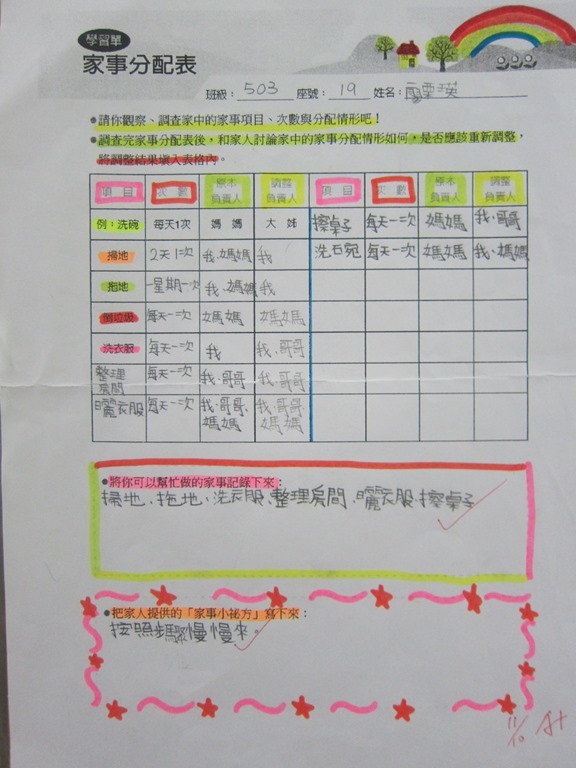 學習單
家事分配表
班級：503 座號：19 姓名：
●請你觀察、調查家中的家事項目、次數與分配情形吧！
●調查完家事分配表後，和家人討論家中的家事分配情形如何，是否應該重新調整，
將調整結果填入表格內。
項目 次數 原本負責人 調整負責人 項目 次數 原本負責人 調整負責人
例：洗碗 每天1次 媽媽 大姊 擦桌子 每天一次 媽媽 我、哥哥
掃地 2天1次 我、媽媽 我 洗石宛 每天一次 媽媽 我、媽媽
拖地 一星期一次 我、媽媽 我
倒垃圾 每天一次 媽媽 媽媽
洗衣服 每天一次 我 我、哥哥
整理房間 每天一次 我、哥哥 我、哥哥
曬衣服 每天一次 我、哥哥、媽媽 我、哥哥、媽媽
●將你可以幫忙做的家事記錄下來：
掃地、拖地、洗衣服、整理房間、曬衣服、擦桌子
●把家人提供的「家事小祕方」寫下來：
按照步驟慢慢來。
11/10 A+